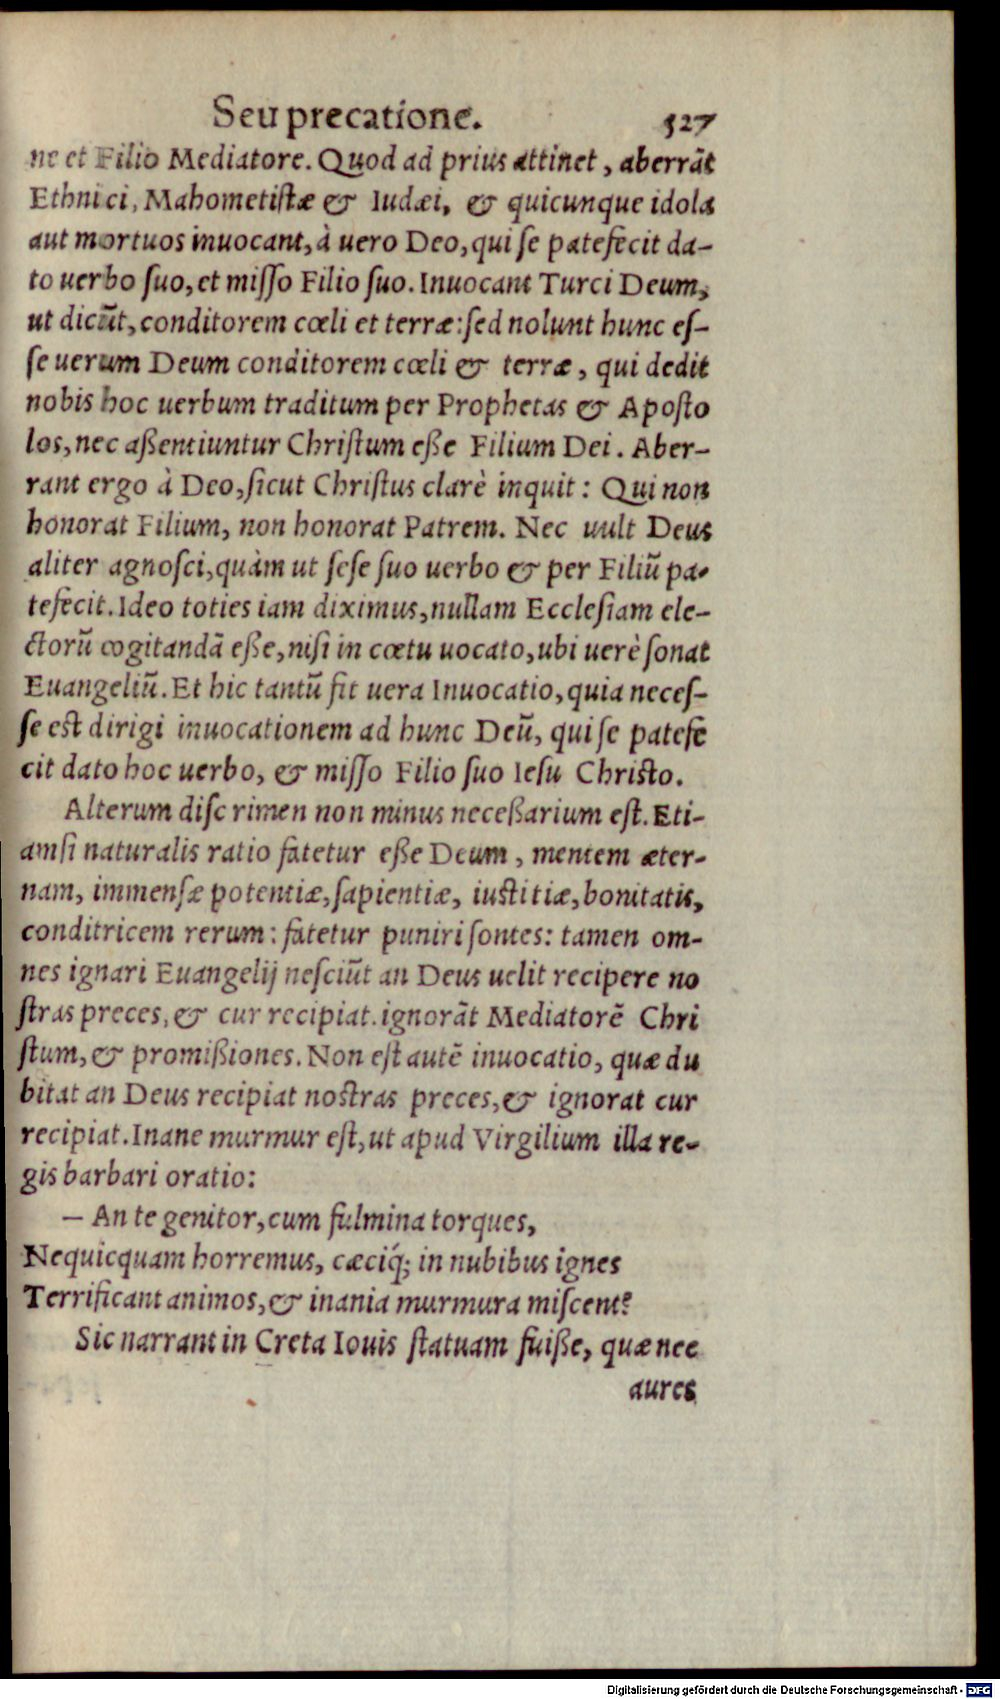 Seu precatione. 527
ne et Filio Mediatore. Quod ad prius attinet, aberrāt
Ethnici, Mahometistæ & Iudæi, & quicunque idola
aut mortuos inuocant, à uero Deo, qui se patefecit da-
to uerbo suo, et misso Filio suo. Inuocant Turci Deum,
ut dicūt, conditorem cœli et terræ: sed nolunt hunc es-
se uerum Deum conditorem cœli & terræ, qui dedit
nobis hoc uerbum traditum per Prophetas & Aposto
los, nec aßentiuntur Christum eße Filium Dei. Aber-
rant ergo à Deo, sicut Christus clarè inquit: Qui non
honorat Filium, non honorat Patrem. Nec uult Deus
aliter agnosci, quàm ut sese suo uerbo & per Filiū pa-
tefecit. Ideo toties iam diximus, nullam Ecclesiam ele-
ctorū cogitandā eße, nisi in cœtu uocato, ubi uerè sonat
Euangeliū. Et hic tantū fit uera Inuocatio, quia neces-
se est dirigi inuocationem ad hunc Deū, qui se patefe
cit dato hoc uerbo, & misso Filio suo Iesu Christo.
Alterum discrimen non minus neceßarium est. Eti-
amsi naturalis ratio fatetur eße Deum, mentem æter-
nam, immensæ potentiæ, sapientiæ, iustitiæ, bonitatis,
conditricem rerum: fatetur puniri sontes: tamen om-
nes ignari Euangelij nesciūt an Deus uelit recipere no
stras preces, & cur recipiat. ignorāt Mediatorē Chri
stum, & promißiones. Non est autē inuocatio, quæ du
bitat an Deus recipiat nostras preces, & ignorat cur
recipiat. Inane murmur est, ut apud Virgilium illa re-
gis barbari oratio:
— An te genitor, cum fulmina torques,
Nequicquam horremus, cæciq́; in nubibus ignes
Terrificant animos, & inania murmura miscent?
Sic narrant in Creta Iouis statuam fuiße, quæ nec
aures
Digitalisierung gefördert durch die Deutsche Forschungsgemeinschaft - DFG